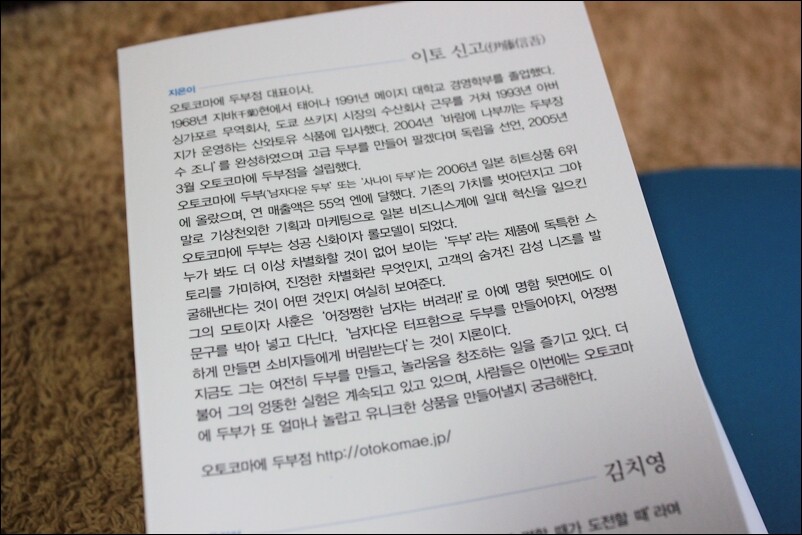 이토 신고(伊藤信吾)
지은이
오토코마에 두부점 대표이사.
1968년 지바(千葉)현에서 태어나 1991년 메이지 대학교 경영학부를 졸업했다.
싱가포르 무역회사, 도쿄 쓰키지 시장의 수산회사 근무를 거쳐 1993년 아버
지가 운영하는 산와토유 식품에 입사했다. 2004년 '바람에 나부끼는 두부장
수 조니'를 완성하였으며 고급 두부를 만들어 팔겠다며 독립을 선언, 2005년
3월 오토코마에 두부점을 설립했다.
오토코마에 두부('남자다운 두부' 또는 '사나이 두부')는 2006년 일본 히트상품 6위
에 올랐으며, 연 매출액은 55억 엔에 달했다. 기존의 가치를 벗어던지고 그야
말로 기상천외한 기획과 마케팅으로 일본 비즈니스계에 일대 혁신을 일으킨
오토코마에 두부는 성공 신화이자 롤모델이 되었다.
누가 봐도 더 이상 차별화할 것이 없어 보이는 '두부'라는 제품에 독특한 스
토리를 가미하여, 진정한 차별화란 무엇인지, 고객의 숨겨진 감성 니즈를 발
굴해낸다는 것이 어떤 것인지 여실히 보여준다.
그의 모토이자 사훈은 '어정쩡한 남자는 버려라!'로 아예 명함 뒷면에도 이
문구를 박아 넣고 다닌다. '남자다운 터프함으로 두부를 만들어야지, 어정쩡
하게 만들면 소비자들에게 버림받는다'는 것이 지론이다.
지금도 그는 여전히 두부를 만들고, 놀라움을 창조하는 일을 즐기고 있다. 더
불어 그의 엉뚱한 실험은 계속되고 있고 있으며, 사람들은 이번에는 오토코마
에 두부가 또 얼마나 놀랍고 유니크한 상품을 만들어낼지 궁금해한다.
오토코마에 두부점 http://otokomae.jp/
김치영
때가 도전할 때'라며